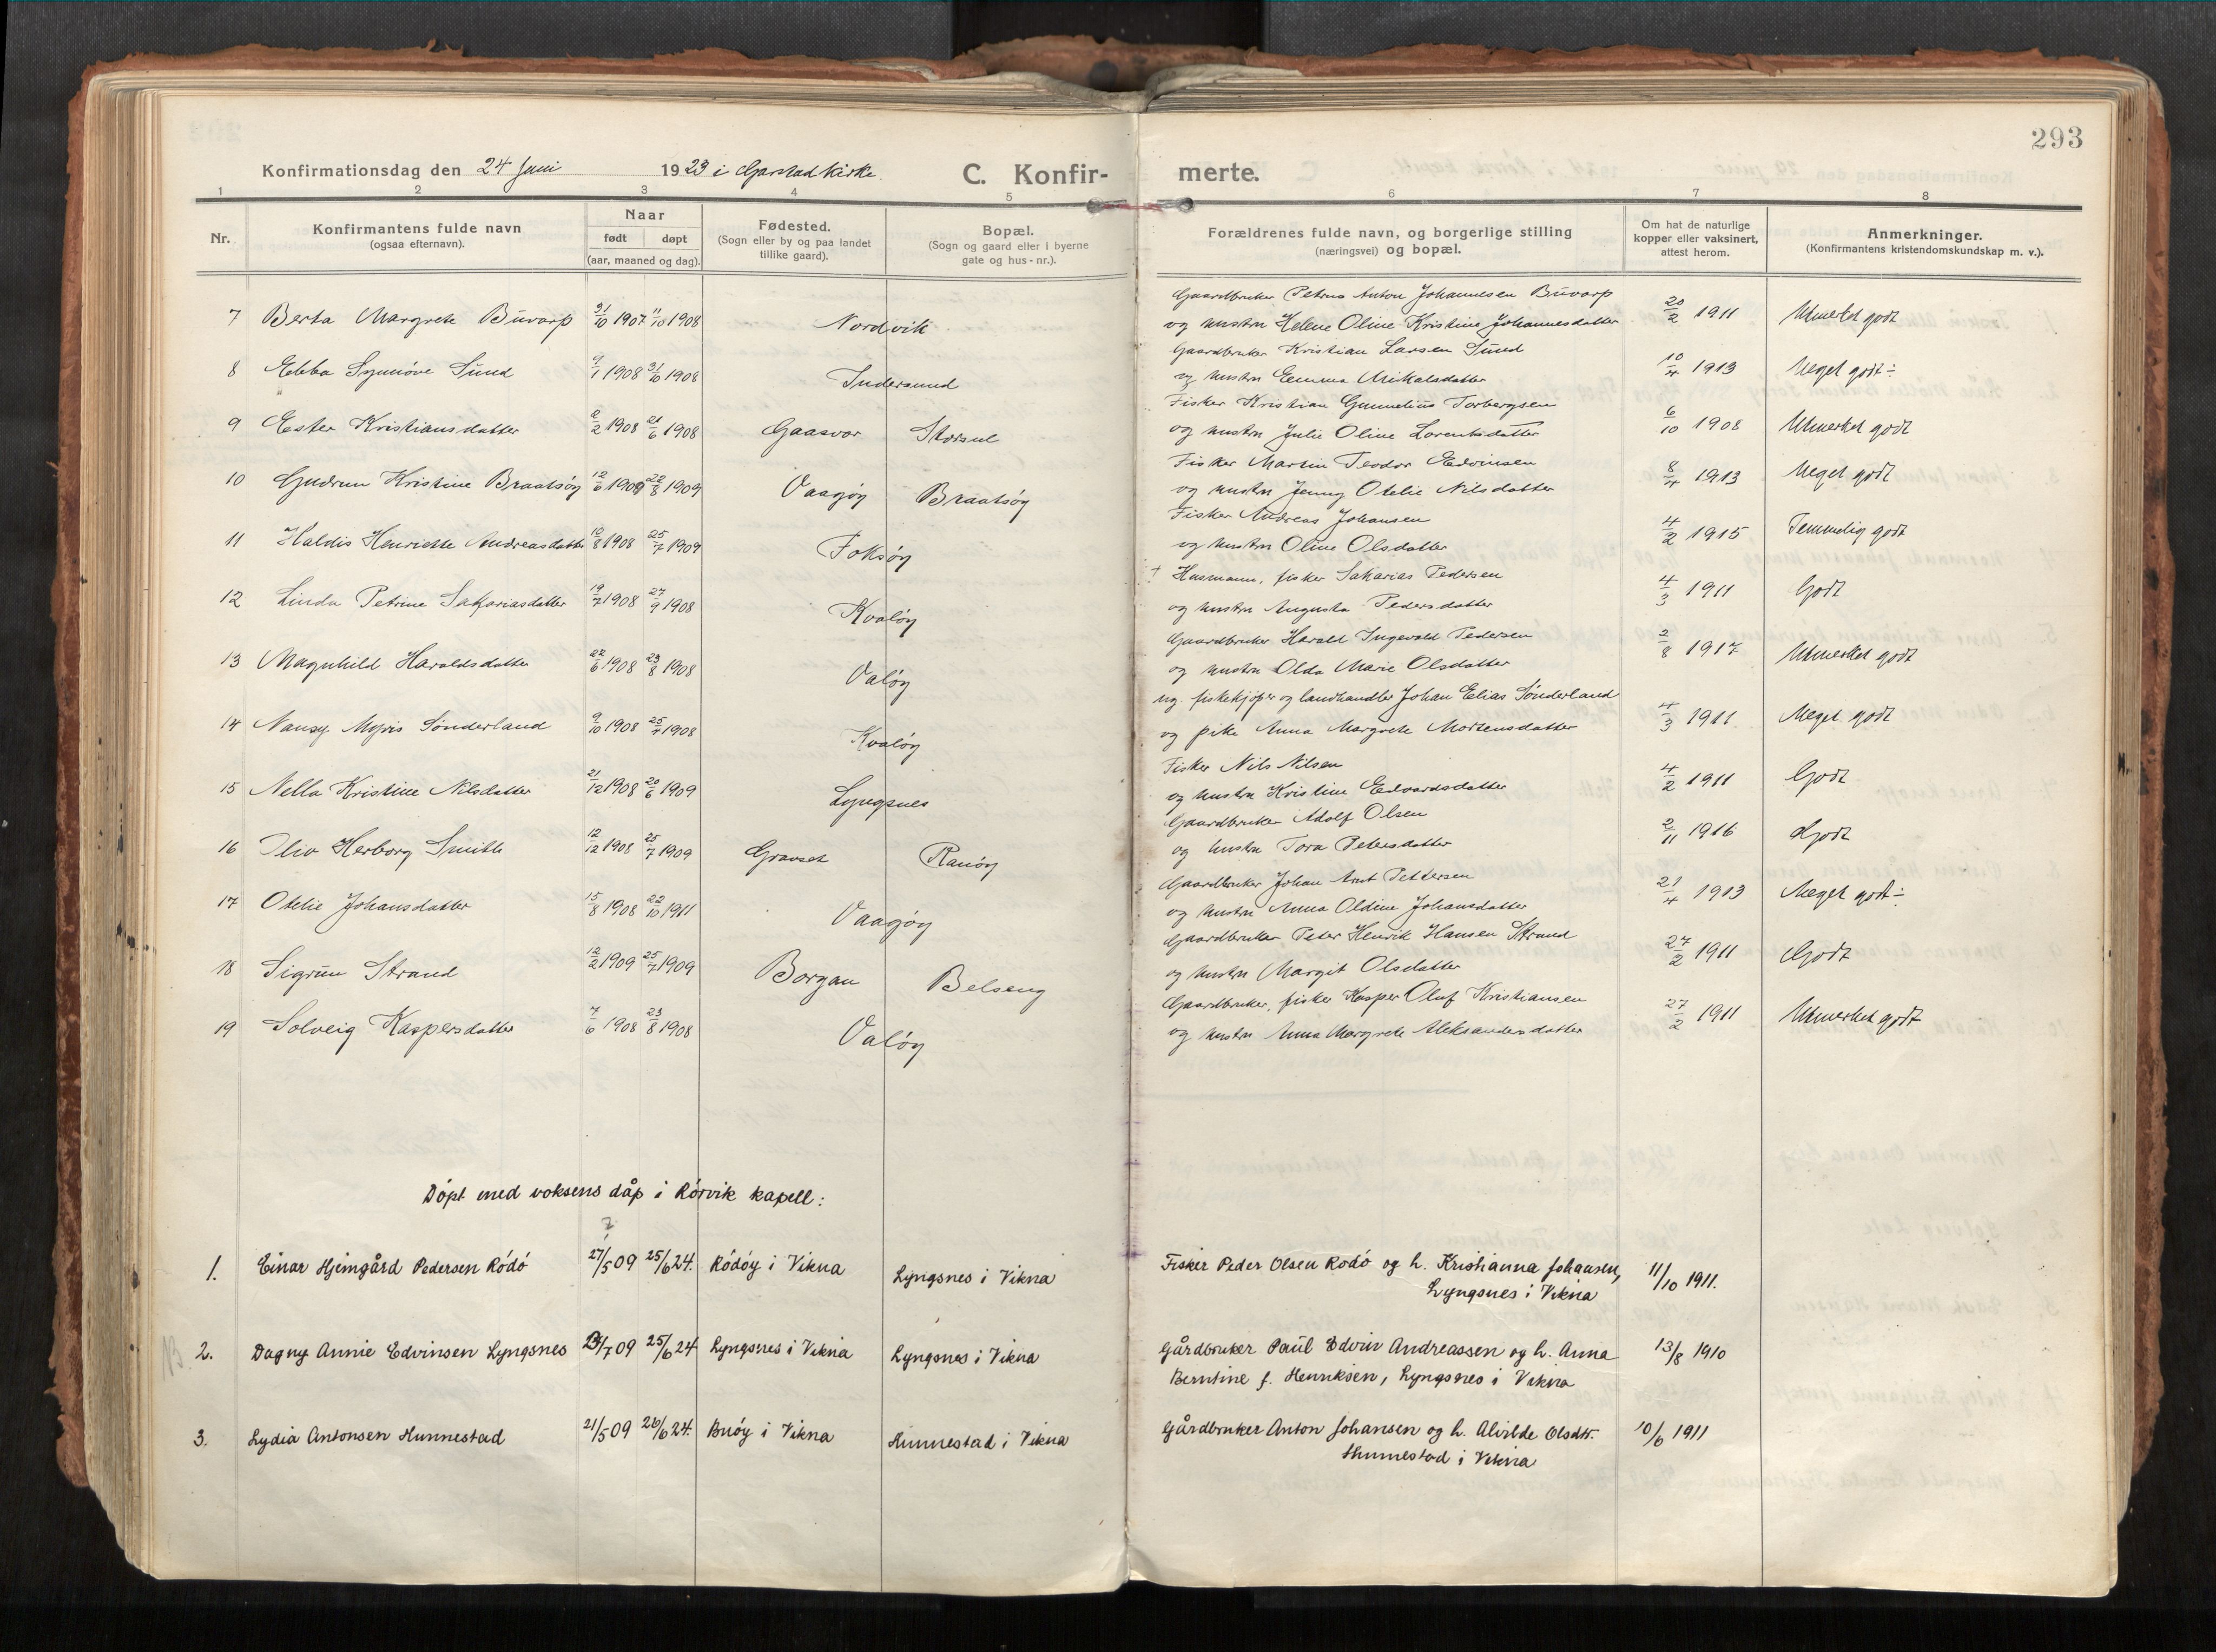 293
Konfirmationsdag den 24 Juni 1923 i Garstad kirke.
C. Konfirmerte.
1 2 3 4 5 6 7 8
Nr.
Konfirmantens fulde navn
(ogsaa efternavn).
Naar
født døpt
(aar, maaned og dag).
Fødested.
(Sogn eller by og paa landet
tillike gaard).
Bopæl.
(Sogn og gaard eller i byerne
gate og hus-nr.).
Forældrenes fulde navn, og borgerlige stilling
(næringsvei) og bopæl.
Om hat de naturlige
kopper eller vaksinert,
attest herom.
Anmerkninger.
(Konfirmantens kristendomskundskap m. v.).
7 Berta Margrete Buvarp 31/10 1907 11/10 1908 Nordvik
Gaardbruker Petrus Anton Johannesen Buvarp
og hustru Helene Oline Kristine Johannesdatter
20/2 1911 Utmerket godt
8 Ebba Synnöve Sund 9/1 1908 31/10 1908 Indersund
Gaardbruker Kristian Larsen Sund
og hustru Emma Mikalsdatter
10/4 1913 Meget godt ÷
9 Ester Kristiansdatter 2/2 1908 21/6 1908 Gaasvær
Fisker Kristian Gunnelius Torbergsen
og hustru Julie Oline Lorentsdatter
6/10 1908 Utmerket godt
10 Gudrun Kristine Braatsöy 12/6 1909 22/8 1909 Vaagöy Braatsöy
Fisker Martin Teodor Edvinsen
og hustru Jenny Otelie Nilsdatter
8/4 1913 Meget godt
11 Haldis Henriette Andreasdatter 12/8 1908 25/7 1909 Foksöy
Fisker Andreas Johansen
og hustru Oline Olsdatter
4/2 1915 Temmelig godt
12 Linda Petrine Sakariasdatter 19/7 1908 27/9 1908 Kvalöy
† Husmann, fisker Sakarias Pedersen
og hustru Augusta Pedersdatter
4/3 1911 Godt
13 Magnhild Haraldsdatter 22/6 1908 23/8 1908 Valöy
Gaardbruker Harald Ingevald Pedersen
og hustru Olda Marie Olsdatter
2/8 1917 Utmerket godt
14 Nansy Sönderland 9/10 1908 25/7 1908 Kvalöy
ug. fiskekjöper og landhandler Johan Elias Sönderland
og pike Anna Margrete Mortensdatter
4/3 1911 Meget godt
15 Nella Kristine Nilsdatter 21/12 1908 20/6 1909 Lyngsnes
Fisker Nils Nilsen
og hustru Kristine Edvardsdatter
4/2 1911 Godt
16 Oliv Herborg Smith 12/12 1908 25/7 1909 Gravset Ranöy
Gaardbruker Adolf Olsen
og hustru Tora Petersdatter
2/11 1916 Godt
17 Otelie Johansdatter 15/8 1908 22/10 1911 Vaagöy
Gaardbruker Johan Arnt Pettersen
og hustru Anna Oldine Johansdatter
21/4 1913 Meget godt ÷
18 Sigrun Strand 12/2 1909 25/7 1909 Borgan Belseng
Gaardbruker Peter Henrik Hansen Strand
og hustru Margit Olsdatter
27/2 1911 Godt
19 Solveig Kaspersdatter 7/6 1908 23/8 1908 Valöy
Gaardbruker, fisker Kasper Oluf Kristiansen
og hustru Anna Margrete Aleksandersdatter
27/2 1911 Utmerket godt
Döpt med voksens dåp i Rörvik kapell:
7
1. Einar Hjemgård Pedersen Rödö 27/5 09 25/6 24. Rödöy i Vikna Lyngsnes i Vikna
Fisker Peder Olsen Rodö og h. Kristianna Johansen,
Lyngsnes i Vikna
11/10 1911.
2. Dagny Annie Edvinsen Lyngsnes 13/7 09 25/6 24 Lyngsnes i Vikna Lyngsnes i Vikna
Gårdbruker Paul Edvin Andreassen og h. Anna
Berntine f. Henriksen, Lyngsnes i Vikna
13/8 1910
3. Lydia Antonsen Hunnestad 21/5 09 26/6 24. Buöy i Vikna Hunnestad i Vikna
Gårdbruker Anton Johansen og h. Alvilde Olsdtr.
Hunnestad i Vikna
10/6 1911